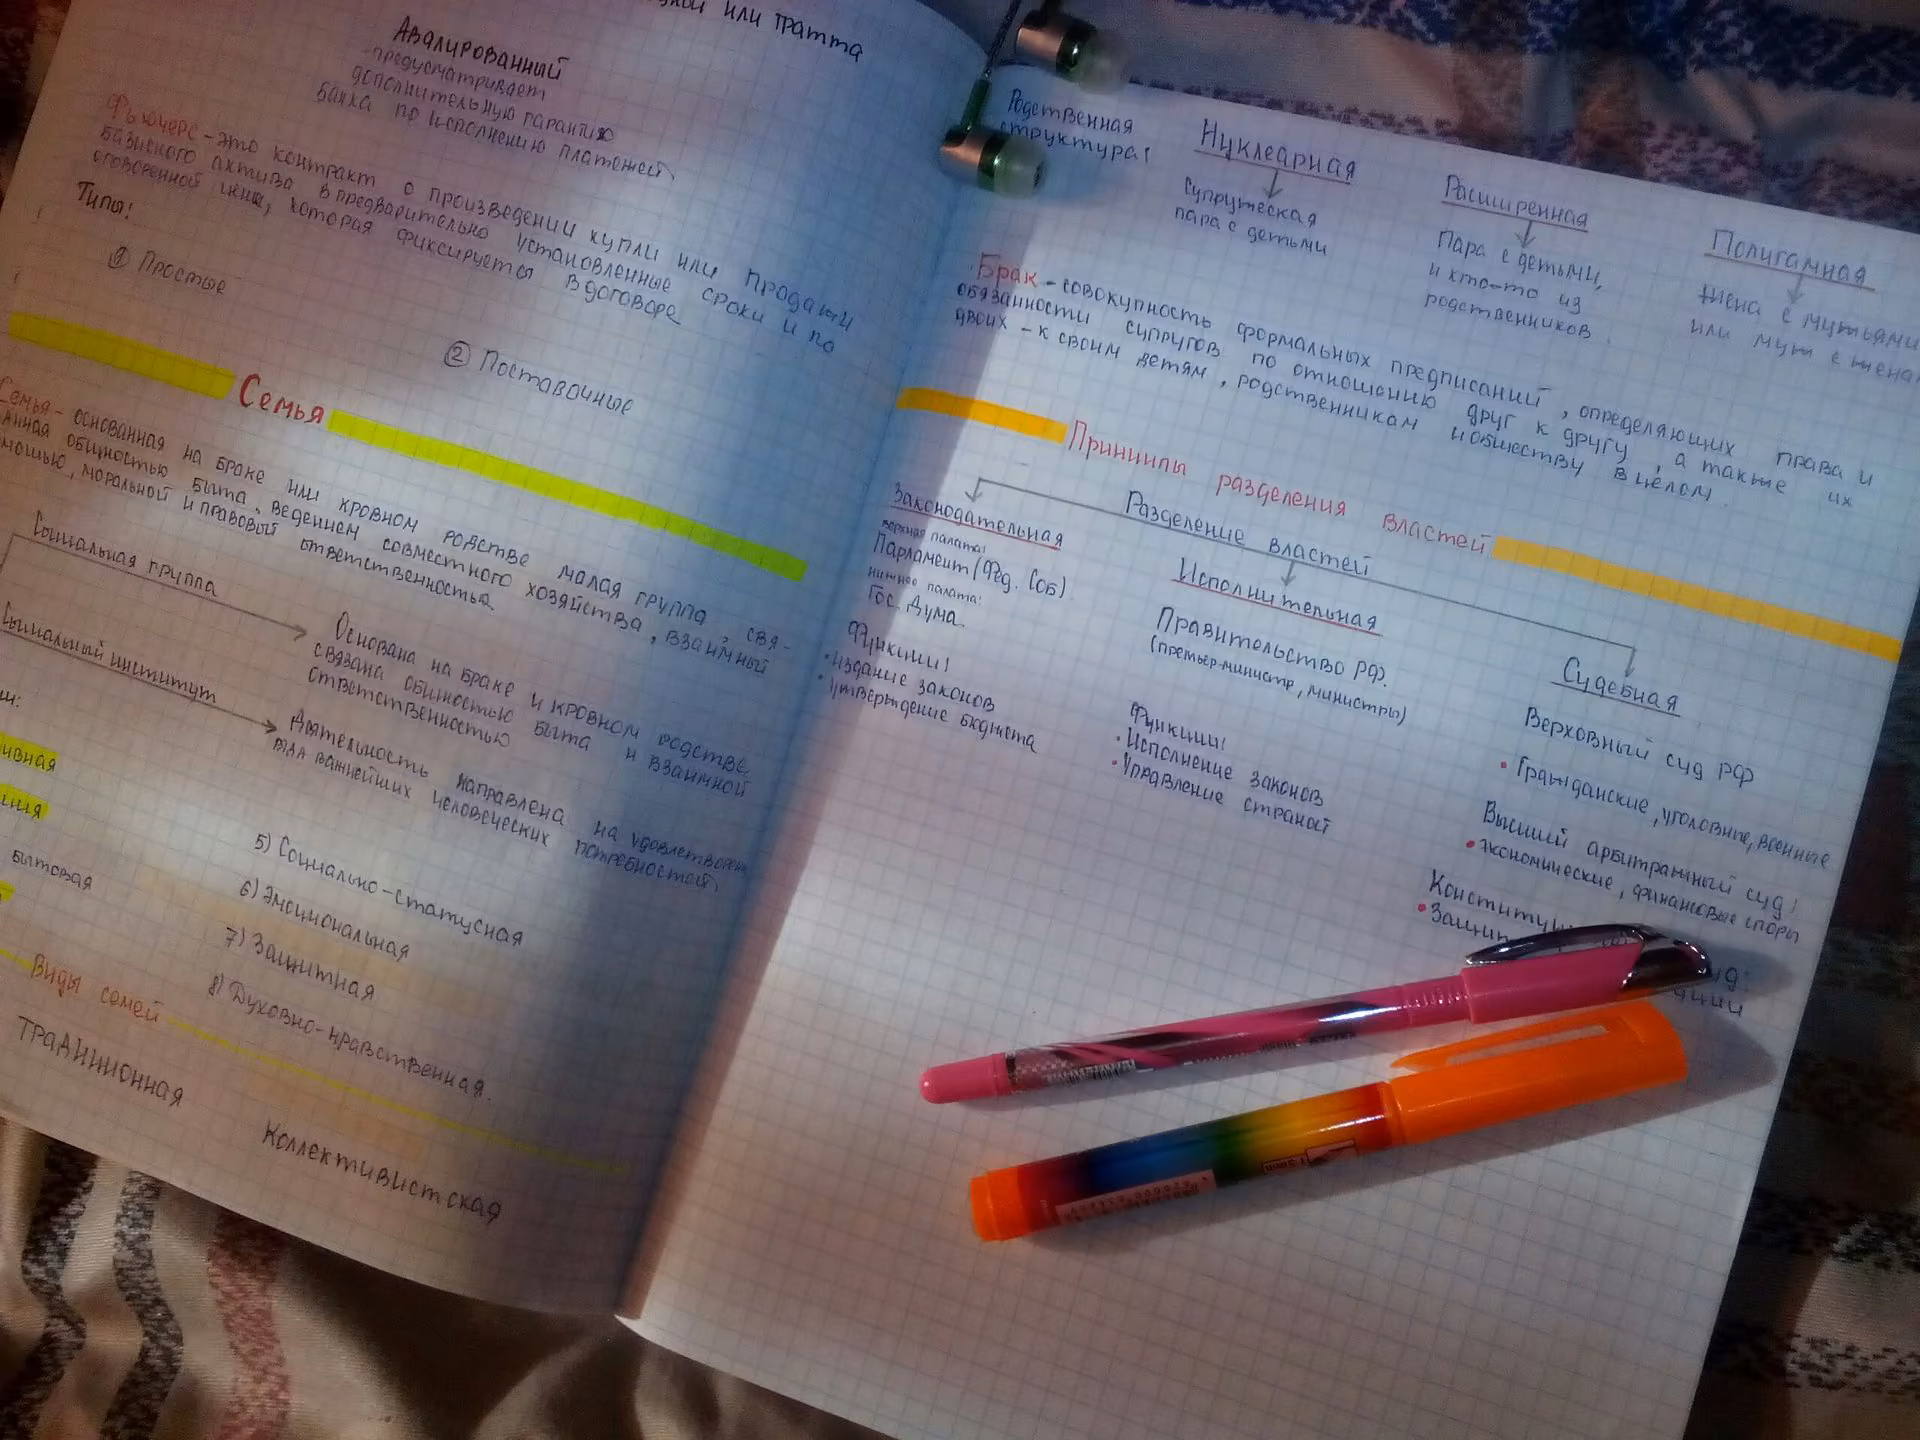 или тратта
Авалированный
-предусматривает
дополнительную гарантию
банка по исполнению платежей
Фьючерс - это контракт о произведении купли или продажи
базисного актива в предварительно установленные сроки и по
оговоренной цены, которая фиксируется в договоре
Типы:
① Простые
② Поставочные
Семья
Семья - основанная на браке или кровном родстве малая группа, свя-
анная общностью быта, ведением совместного хозяйства, взаимный
мощью, моральной и правовый ответственностью
Социальная группа
Основана на браке и кровном родстве,
связана общностью быта и взаимной
ответственностью
Социальный институт
Деятельность направлена на удовлетворен
важнейших человеческих потребностей
ии:
ивная
бытовая
5) Социально-статусная
6) Эмоциональная
7) Защитная
8) Духовно-нравственная.
Виды семей
Традиционная
Коллективистская
Родственная
структура:
Нуклеарная
Супружеская
пара с детьми
Расширенная
Пара с детьми,
и кто-то из
родственников.
Полигамная
Жена с мужьями
или муж с жена
Брак - совокупность формальных предписаний, определяющих права и
обязанности супругов по отношению друг к другу, а также их
двоих - к своим детям, родственникам и обществу в целом.
Принципы разделения властей
Разделение властей
Законодательная
верхняя палата:
Парламент (Фед. Соб)
нижнее палата:
Гос. Дума.
Функции:
• издание законов
• утверждение бюджета
Исполнительная
Правительство РФ.
(премьер-министр, министры)
Функции:
• Исполнение законов
• Управление страной
Судебная
Верховный суд РФ
• Гражданские, уголовные, военные
Высший арбитражный суд:
• экономические, финансовые споры
Конституц
уд:
• Защит
ации